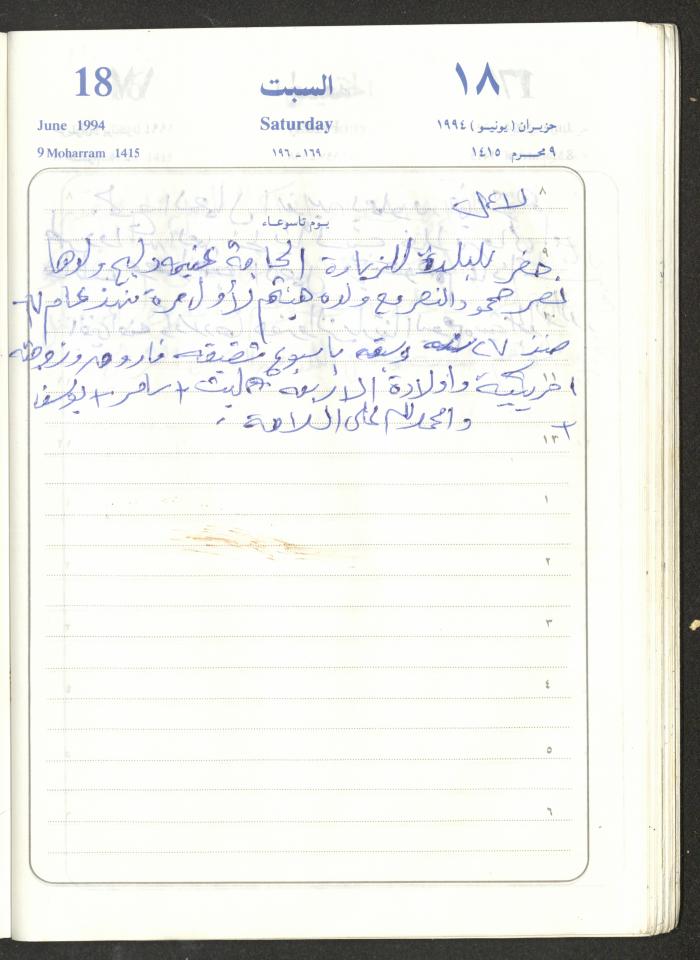 18 السبت ١٨
June 1994 Saturday حزيران (يونيو) ١٩٩٤
9 Moharram 1415 ١٦٩-١٩٦ ٩ محرم ١٤١٥
٨
يوم تاسوعاء
٩ حضر للبلدة للزيارة الحاجة غنيمه وليم ولدها
نصر حمود النصر مع ولده هيثم لأول مرة منذ عام ٦٧
منذ ٢٧ سنه وسبقه باسبوع شقيقه فاروق وزوجته
امريكية واولادة الاربعة ليث + سامر + يوسف
+ والحمد لله على السلامة
١٢
١
٢
٣
٤
٥
٦